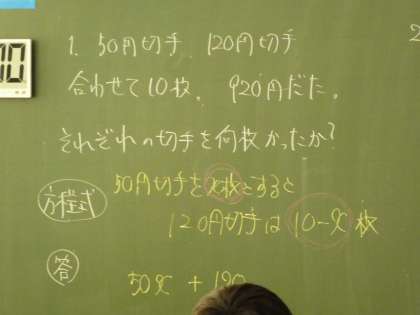 10
1. 50円切手、120円切手
2
合わせて10枚、920円だた。
それぞれの切手を何枚かったか?
方程式
50円切手をx枚とすると
120円切手は10-x枚
答
50x + 120